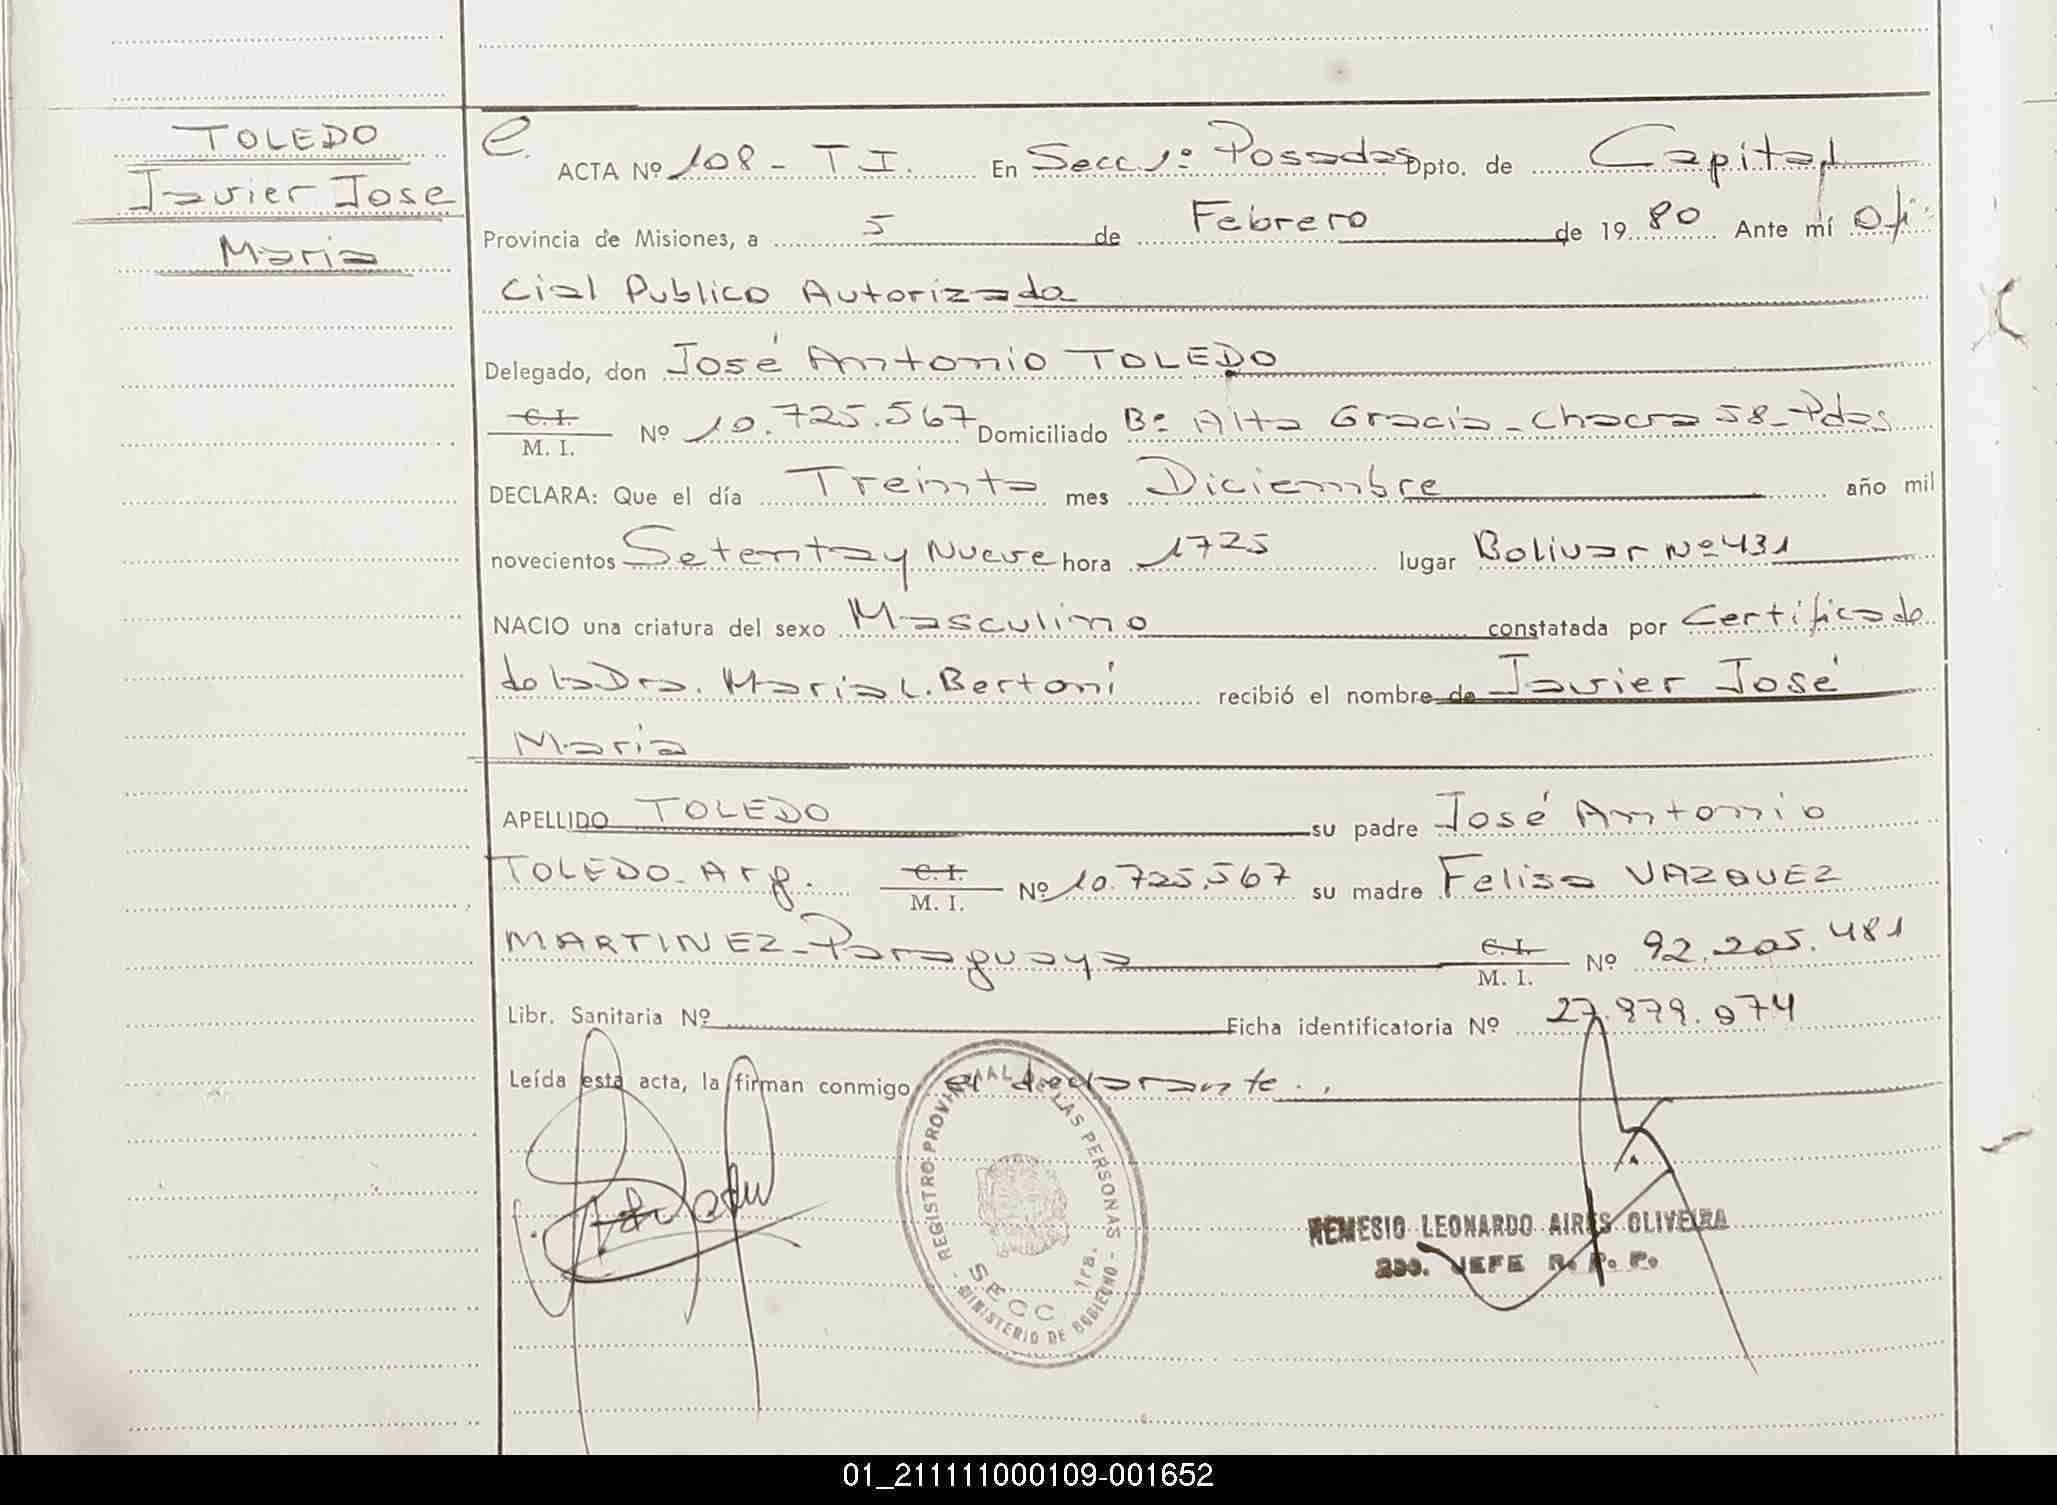 TOLEDO
Javier Jose
Maria
e.
ACTA Nº 108 - T I. En Secc 1º Posadas Dpto. de Capital
Provincia de Misiones, a 5 de Febrero de 1980 Ante mí Ofi
cial Publico Autorizado
Delegado, don José Antonio TOLEDO
C. I.
M. I. Nº 10.725.567 Domiciliado Bº Alta Gracia - Chacra 58 - Pdas
DECLARA: Que el día Treinta mes Diciembre año mil
novecientos Setenta y Nueve hora 1725 lugar Bolivar Nº 431
NACIO una criatura del sexo Masculino constatada por Certificado
de la Dra. Maria L. Bertoni recibió el nombre de Javier José
Maria
APELLIDO TOLEDO su padre José Antonio
TOLEDO - Arg. C. I. M. I. Nº 10.725.567 su madre Felisa VAZQUEZ
MARTINEZ - Paraguaya C. I. M. I. Nº 92.205.481
Libr. Sanitaria Nº Ficha identificatoria Nº 27.979.074
Leída esta acta, la firman conmigo el declarante.
REGISTRO PROVINCIAL DE LAS PERSONAS - MINISTERIO DE GOBIERNO -
SECC 1ra.
NEMESIO LEONARDO AIRES OLIVEIRA
2do. JEFE R. P. P.
01_211111000109-001652